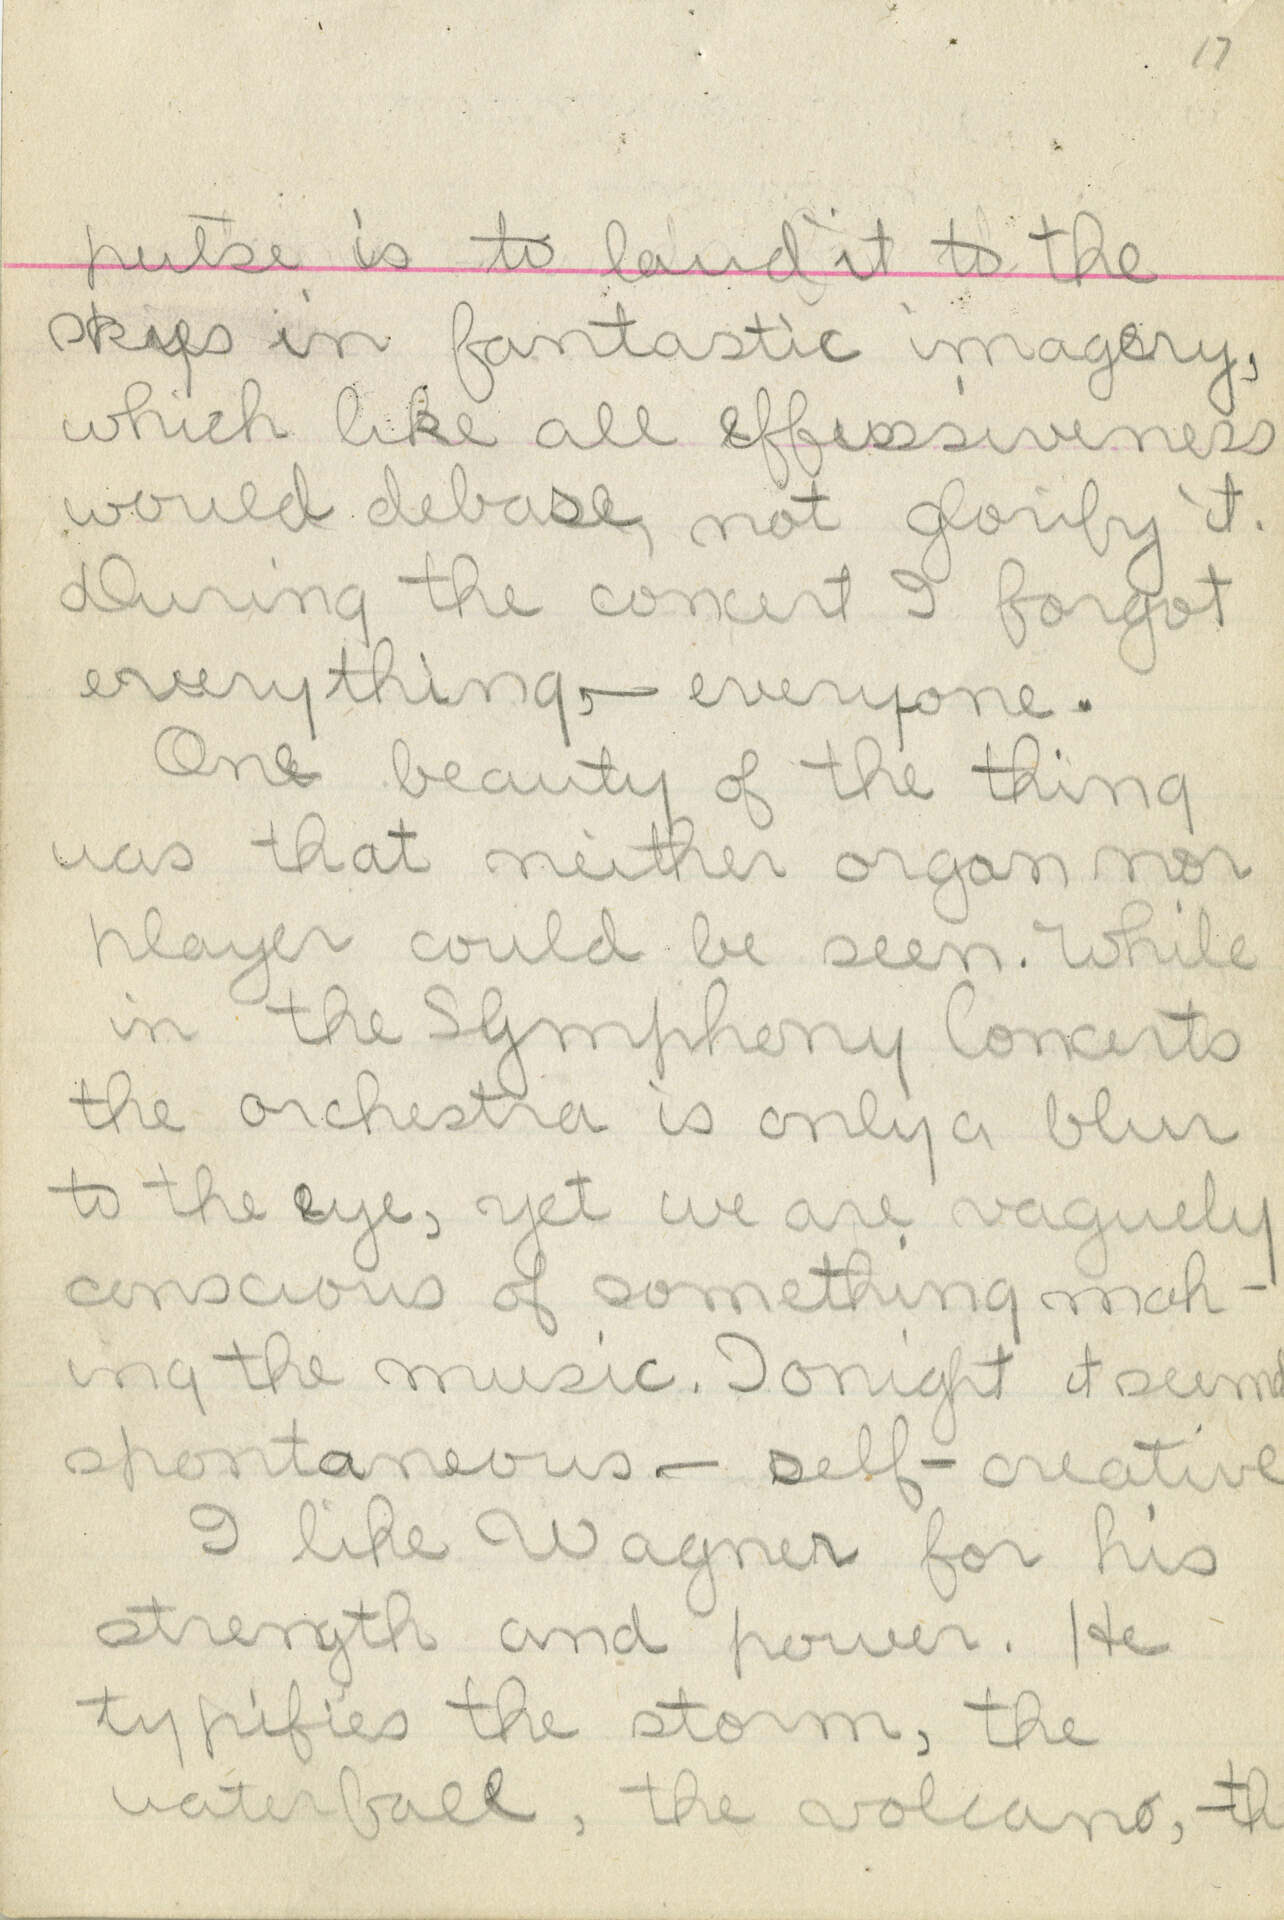 17
pulse is to laud it to the
skys in fantastic imagery,
which like all effussiveness
would debase, not glorify it.
During the concert I forgot
everything, — everyone.
One beauty of the thing
was that neither organ nor
player could be seen. While
in the Symphony Concerts
the orchestra is only a blur
to the eye, yet we are vaguely
conscious of something mak-
ing the music. Tonight it seemed
spontaneous — self-creative
I like Wagner for his
strength and power. He
typifies the storm, the
waterfall, the volcano, th